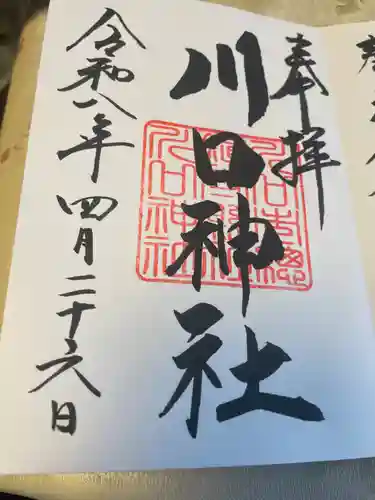 奉拝
川口神社
令和八年四月二十六日